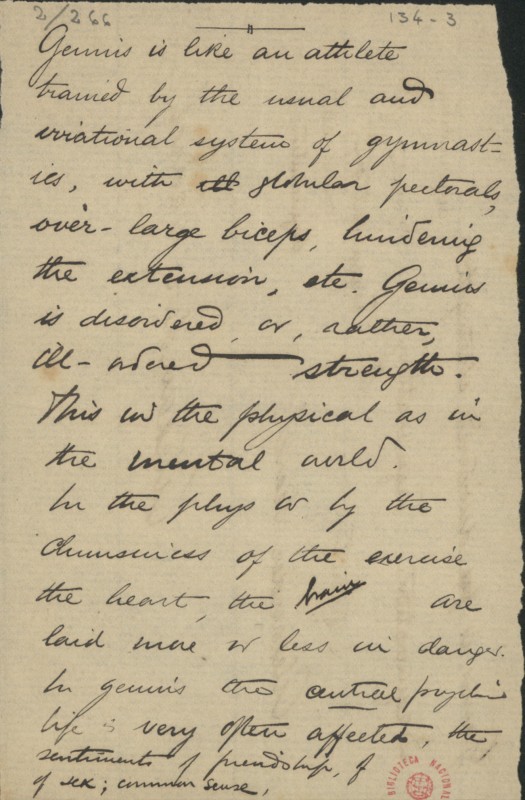 2/266
134-3
Genius is like an athlete
trained by the usual and
irrational system of gymnast-
ics, with globular pectorals,
over-large biceps, hindering
the extension, etc. Genius
is disordered, or, rather,
ill-ordered strength.
This in the physical as in
the mental world.
In the phys w by the
clumsiness of the exercise
the heart, the brain are
laid more or less in danger.
In genius the central psychic
life is very often affected, the
sentiments of friendship, of
of sex; common sense,
BIBLIOTECA NACIONAL